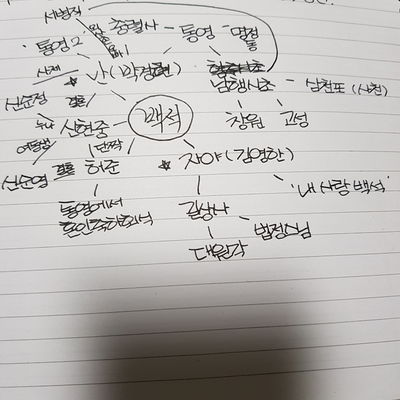 서병직
충렬사 - 통영 - 명정골
통영2
사제
난(박경련)
남행시초 - 삼천포 (사천)
신순정
결혼
백석
창원
고성
누나
신현중
여동생
단짝
자야(김영한)
신순영
결혼
허준
'내 사랑 백석'
통영에서
혼인축하회석
김상나
법정스님
대원각